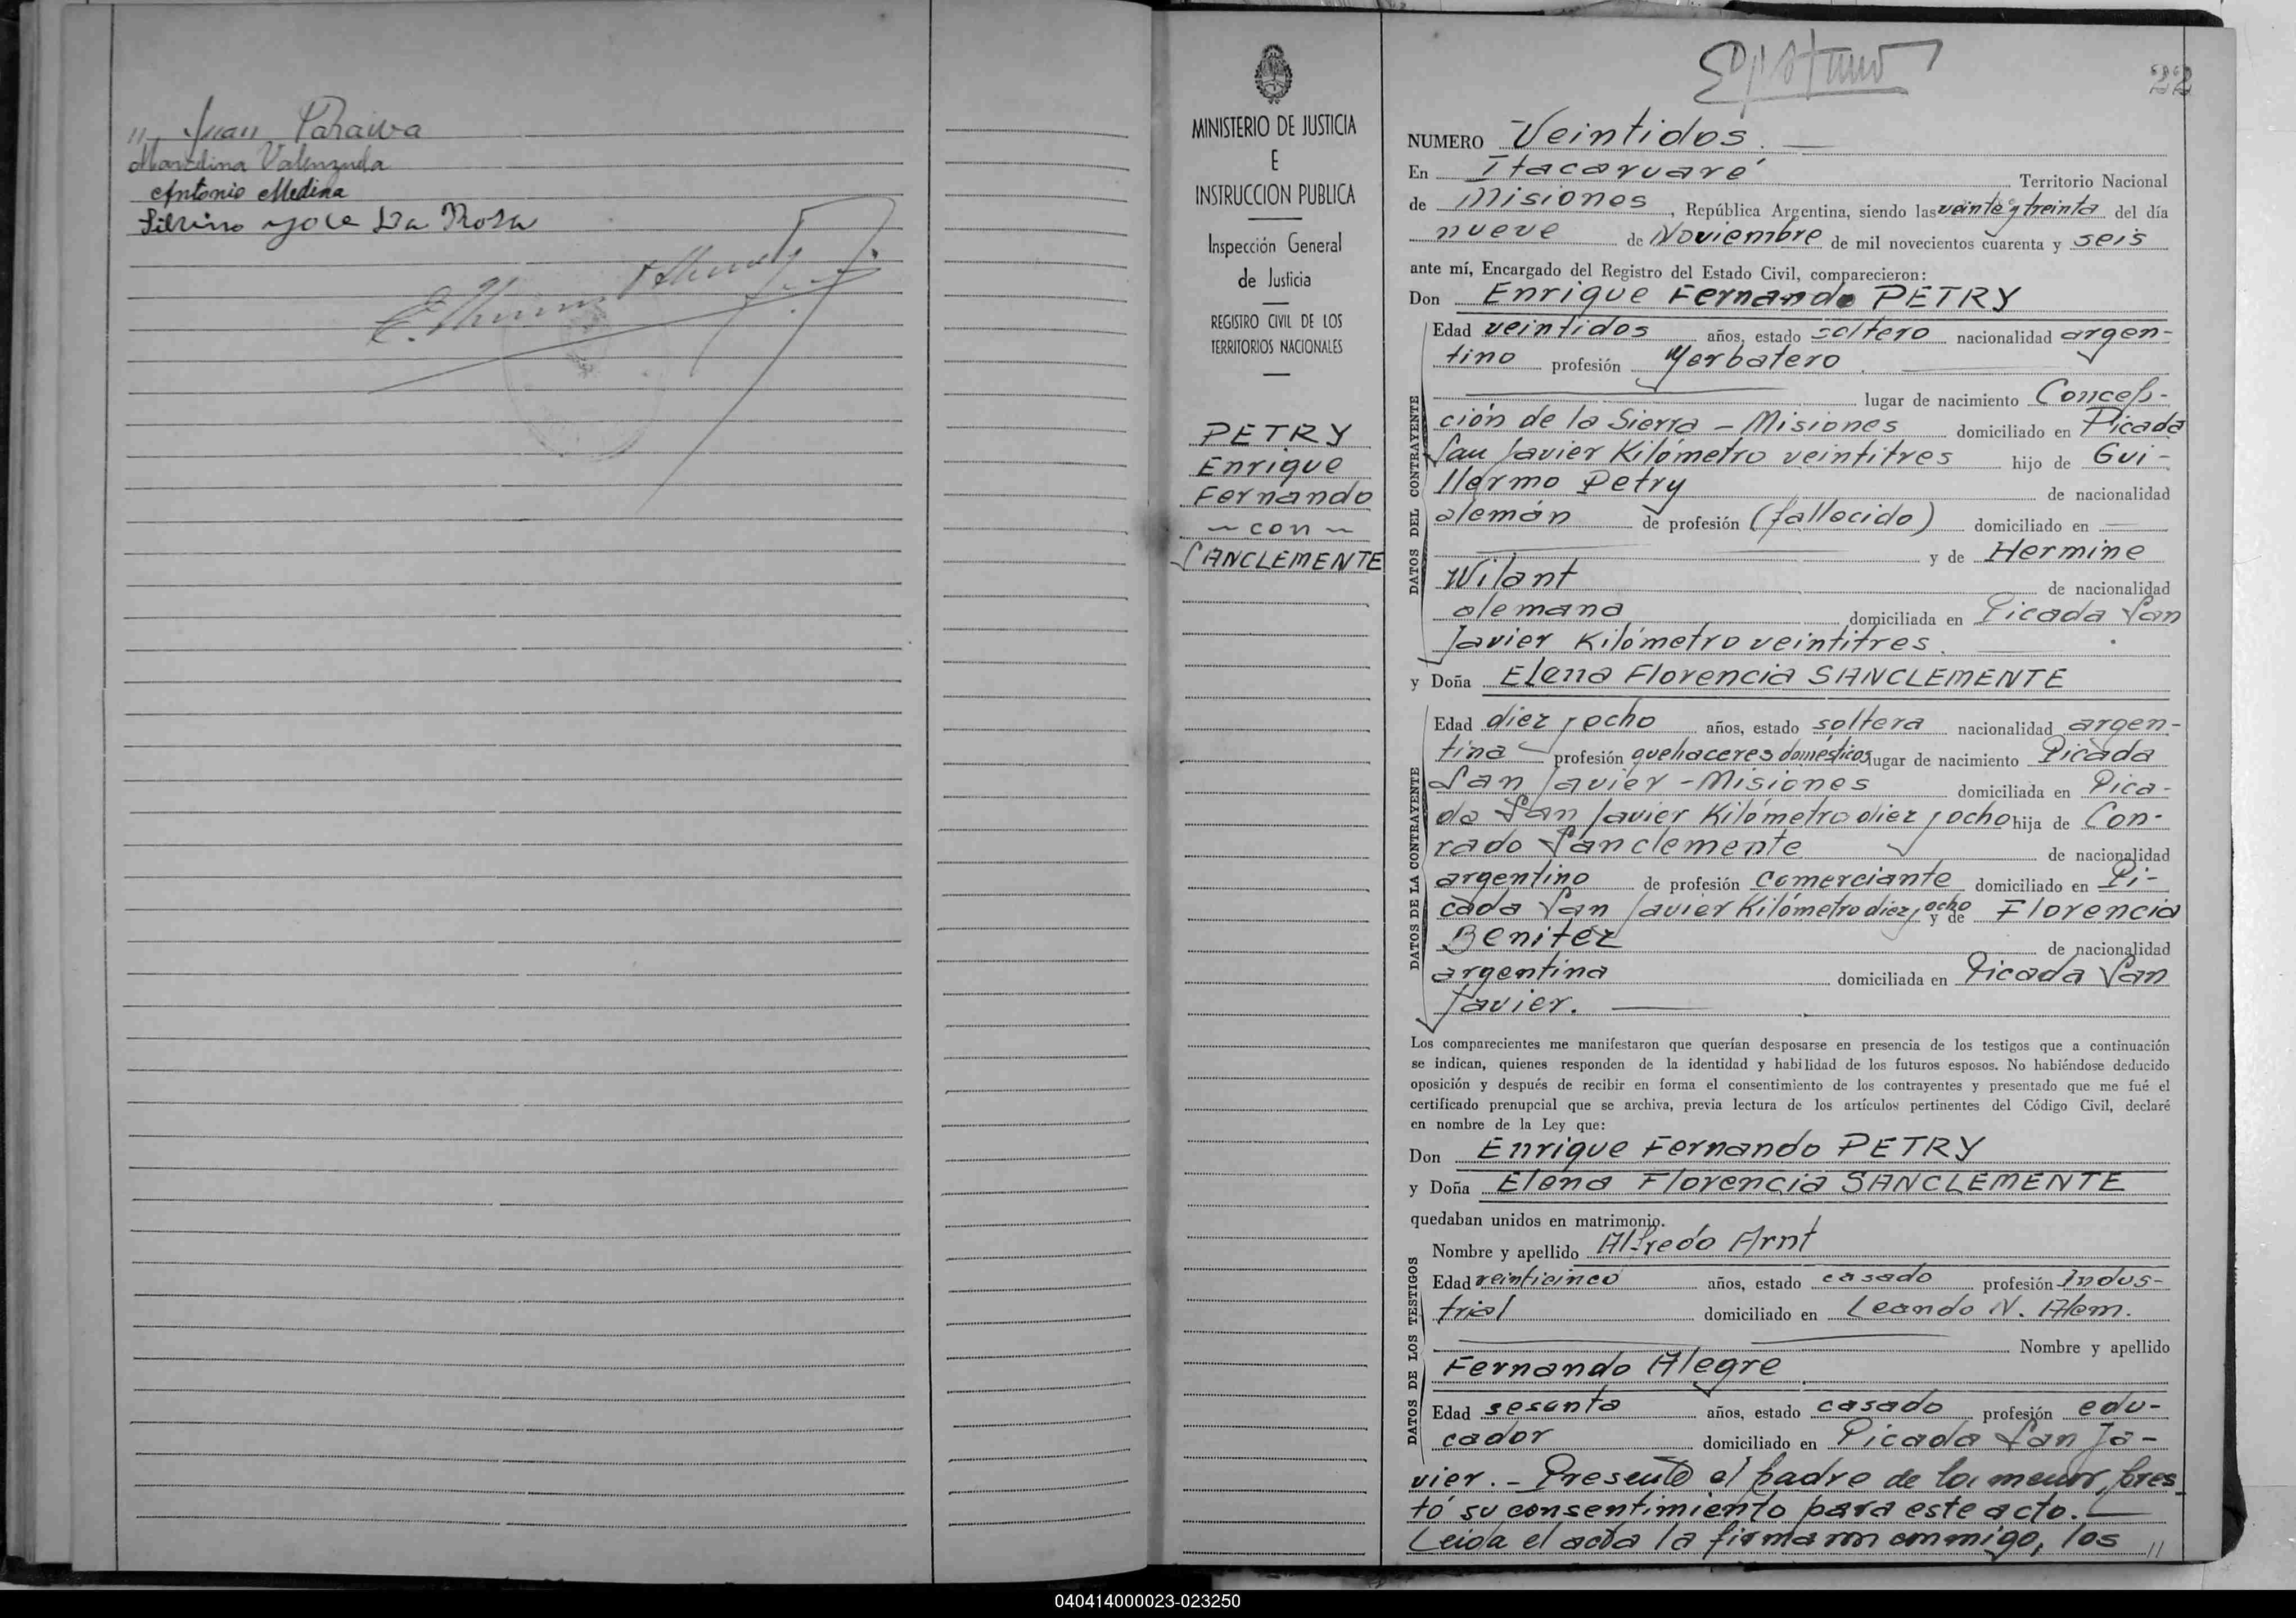 " Juan Paraiva
Marcelina Valenzuela
Antonio Medina
Silvino Jose Da Rosa
MINISTERIO DE JUSTICIA
E
INSTRUCCION PUBLICA
Inspección General
de Justicia
REGISTRO CIVIL DE LOS
TERRITORIOS NACIONALES
PETRY
Enrique
Fernando
~ con ~
SANCLEMENTE
22
NUMERO Veintidos. —
En Itacaruaré Territorio Nacional
de Misiones, República Argentina, siendo las veinte y treinta del día
nueve de Noviembre de mil novecientos cuarenta y seis
ante mí, Encargado del Registro del Estado Civil, comparecieron:
Don Enrique Fernando PETRY
DATOS DEL CONTRAYENTE
Edad veintidos años, estado soltero nacionalidad argen-
tino profesión Yerbatero.
lugar de nacimiento Concep-
ción de la Sierra - Misiones domiciliado en Picada
San Javier Kilómetro veintitres hijo de Gui-
llermo Petry de nacionalidad
alemán de profesión (fallecido) domiciliado en —
y de Hermine
Wilant de nacionalidad
alemana domiciliada en Picada San
Javier Kilómetro veintitres.
y Doña Elena Florencia SANCLEMENTE
DATOS DE LA CONTRAYENTE
Edad diez y ocho años, estado soltera nacionalidad argen-
tina profesión quehaceres domésticos lugar de nacimiento Picada
San Javier - Misiones domiciliada en Pica-
da San Javier Kilómetro diez y ocho hija de Con-
rado Sanclemente de nacionalidad
argentino de profesión Comerciante domiciliado en Pi-
cada San Javier Kilómetro diez y ocho y de Florencia
Benitez de nacionalidad
argentina domiciliada en Picada San
Javier. —
Los comparecientes me manifestaron que querían desposarse en presencia de los testigos que a continuación
se indican, quienes responden de la identidad y habilidad de los futuros esposos. No habiéndose deducido
oposición y después de recibir en forma el consentimiento de los contrayentes y presentado que me fué el
certificado prenupcial que se archiva, previa lectura de los artículos pertinentes del Código Civil, declaré
en nombre de la Ley que:
Don Enrique Fernando PETRY
y Doña Elena Florencia SANCLEMENTE
quedaban unidos en matrimonio.
DATOS DE LOS TESTIGOS
Nombre y apellido Alfredo Arnt
Edad veinticinco años, estado casado profesión Indus-
trial domiciliado en Leando N. Alem.
Nombre y apellido
Fernando Alegre
Edad sesenta años, estado casado profesión edu-
cador domiciliado en Picada San Ja-
vier. - Presente el padre de la menor, pres-
tó su consentimiento para este acto. —
Leida el acta la firmaron conmigo, los "
040414000023-023250